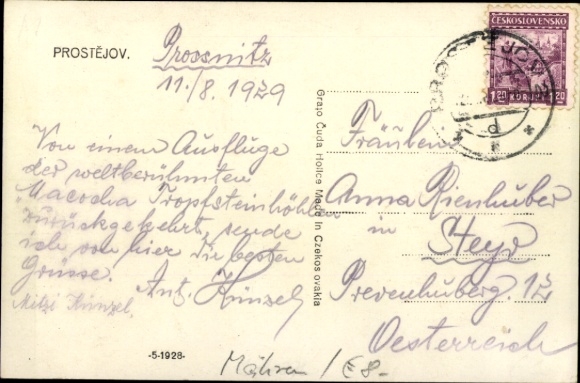 PROSTĚJOV.
Prossnitz
11./8. 1929
Von einem Ausfluge
der weltberühmten
Macocha Tropfsteinhöhlen
zurückgekehrt, sende
ich von hier die besten
Grüsse. Ant. Künzel
Mitzi Künzel,
-5-1928-
Mähren /
Grafo Čuda Holice Made in Czekoslovakia
ČESKOSLOVENSKO
1.20 KORUNY 1.20
Fräulein
Anna Rienhuber
in
Steyr
Oesterreich